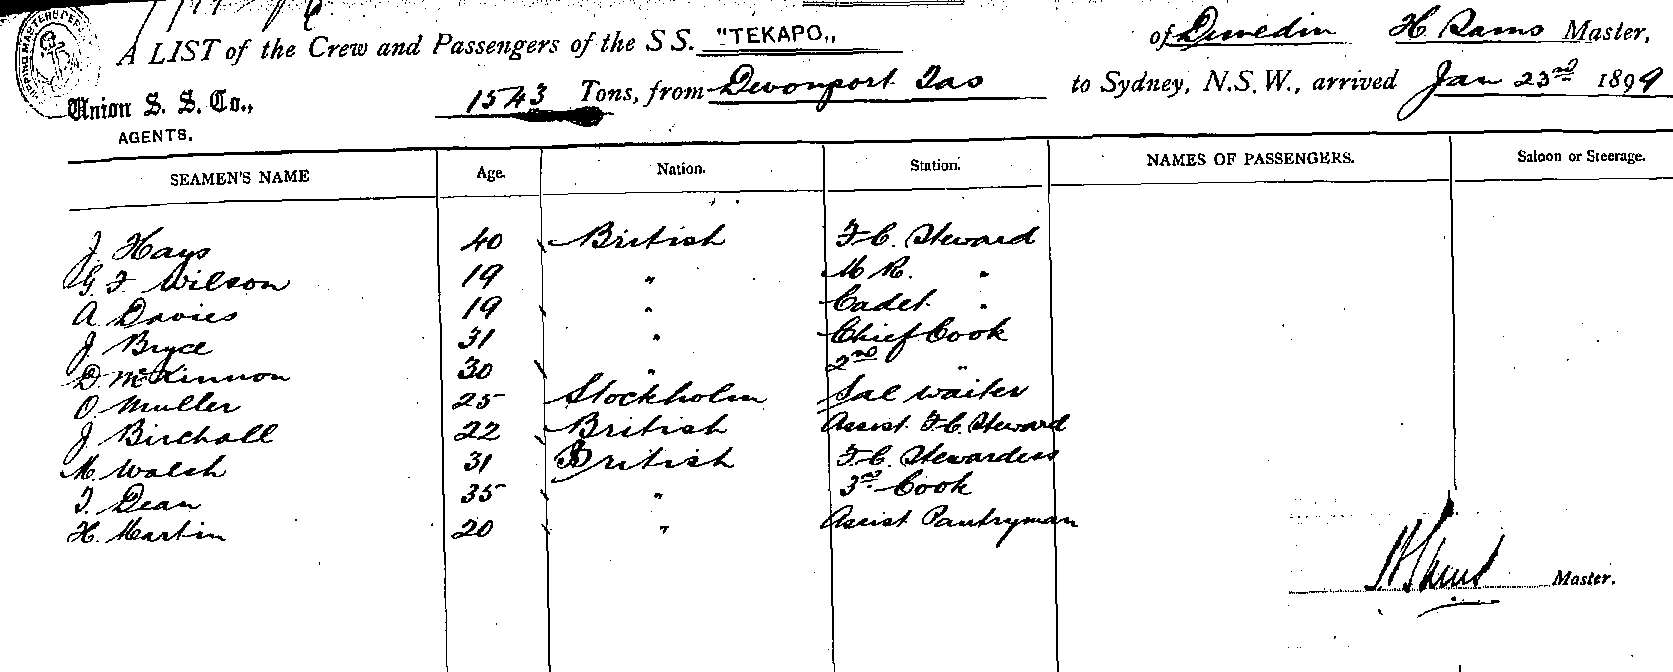 A LIST of the Crew and Passengers of the S S. "TEKAPO,, of Dunedin H Sams Master,
Union S. S. Co., 1543 Tons, from Devonport Tas to Sydney, N.S.W., arrived Jan 23rd 1899
AGENTS.
SEAMEN'S NAME Age. Nation. Station. NAMES OF PASSENGERS. Saloon or Steerage.
J. Hays 40 British F.C. Steward
G F Wilson 19 " M R. "
A Davies 19 " Cadet "
J Bryce 31 " Chief Cook
D. McKinnon 30 " 2nd "
O. Muller 25 Stockholm Sal Waiter
J Birchall 22 British Assist F.C. Steward
M. Walsh 31 British F.C. Stewardess
T. Dean 35 " 3rd Cook
H. Martin 20 " Assist Pantryman
Master.